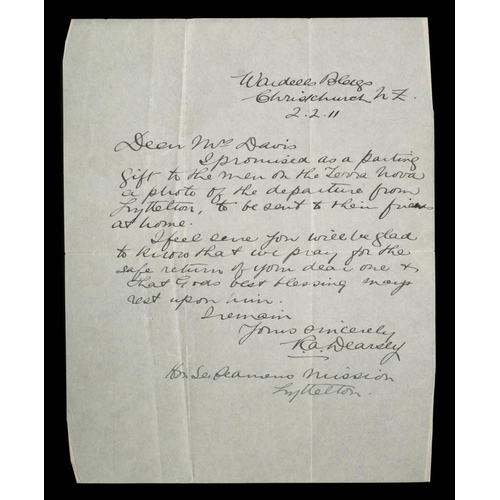 Wardells Bldgs
Christchurch N.Z.
2.2.11
Dear Mrs Davis
I promised as a parting
gift to the men on the Terra Nova
a photo of the departure from
Lyttelton, to be sent to their friends
at home.
I feel sure you will be glad
to know that we pray for the
safe return of your dear one &
that Gods best blessing may
rest upon him.
I remain
Yours sincerely
Dearsly
Hon Sec Seamens Mission
Lyttelton.